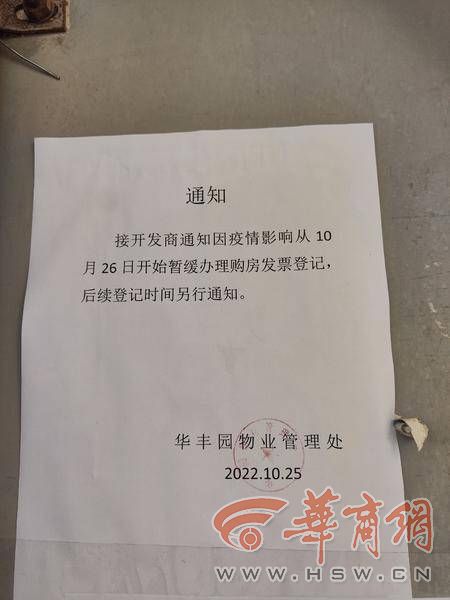 通知
接开发商通知因疫情影响从 10
月 26 日开始暂缓办理购房发票登记，
后续登记时间另行通知。
华丰园物业管理处
2022.10.25
华商網
WWW.HSW.CN